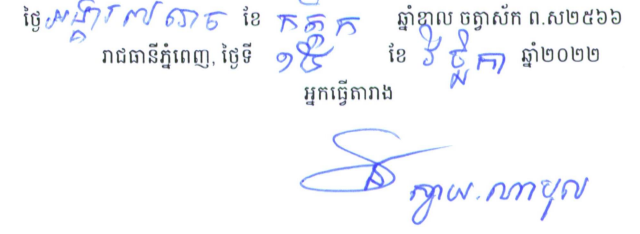 ថ្ងៃ អង្គារ ៧ រោច ខែ កត្តិក ឆ្នាំខាល ចត្វាស័ក ព.ស២៥៦៦
រាជធានីភ្នំពេញ, ថ្ងៃទី ១៥ ខែ វិច្ឆិកា ឆ្នាំ២០២២
អ្នកធ្វើតារាង
ស្វាយ. ណាបុល